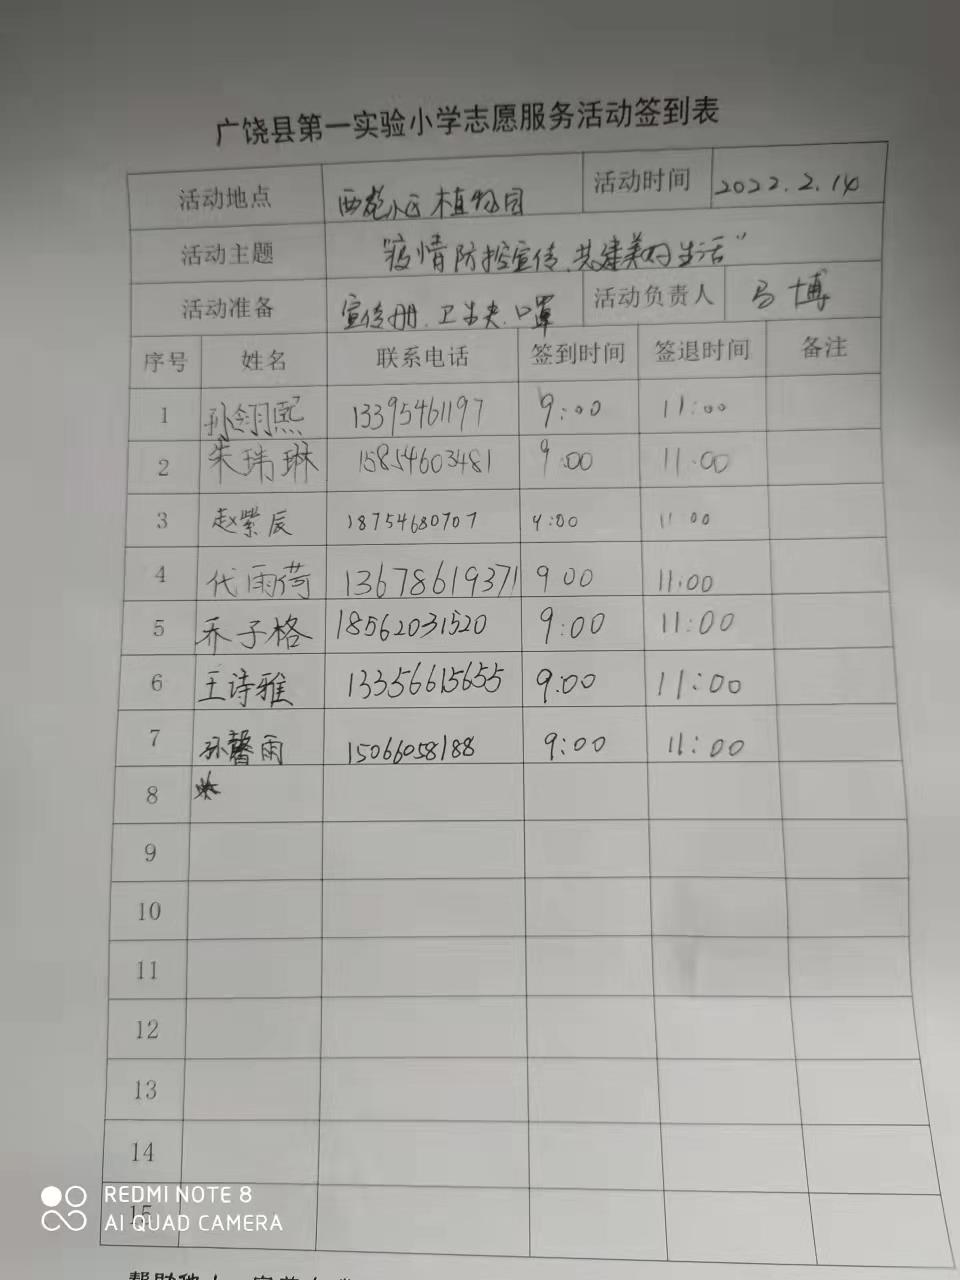 广饶县第一实验小学志愿服务活动签到表
活动地点 西苑小区 植物园 活动时间 2022.2.14
活动主题 "疫情防控宣传、共建美好生活"
活动准备 宣传册、卫生夹、口罩 活动负责人 马博
序号 姓名 联系电话 签到时间 签退时间 备注
1 孙翎熙 13395461197 9:00 11:00
2 朱玮琳 15854603481 9:00 11:00
3 赵紫辰 18754680707 9:00 11 00
4 代雨荷 13678619371 9 00 11:00
5 乔子格 18562031520 9:00 11:00
6 王诗雅 13356615655 9:00 11:00
7 孙馨雨 15066058188 9:00 11:00
8
9
10
11
12
13
14
15
REDMI NOTE 8
AI QUAD CAMERA